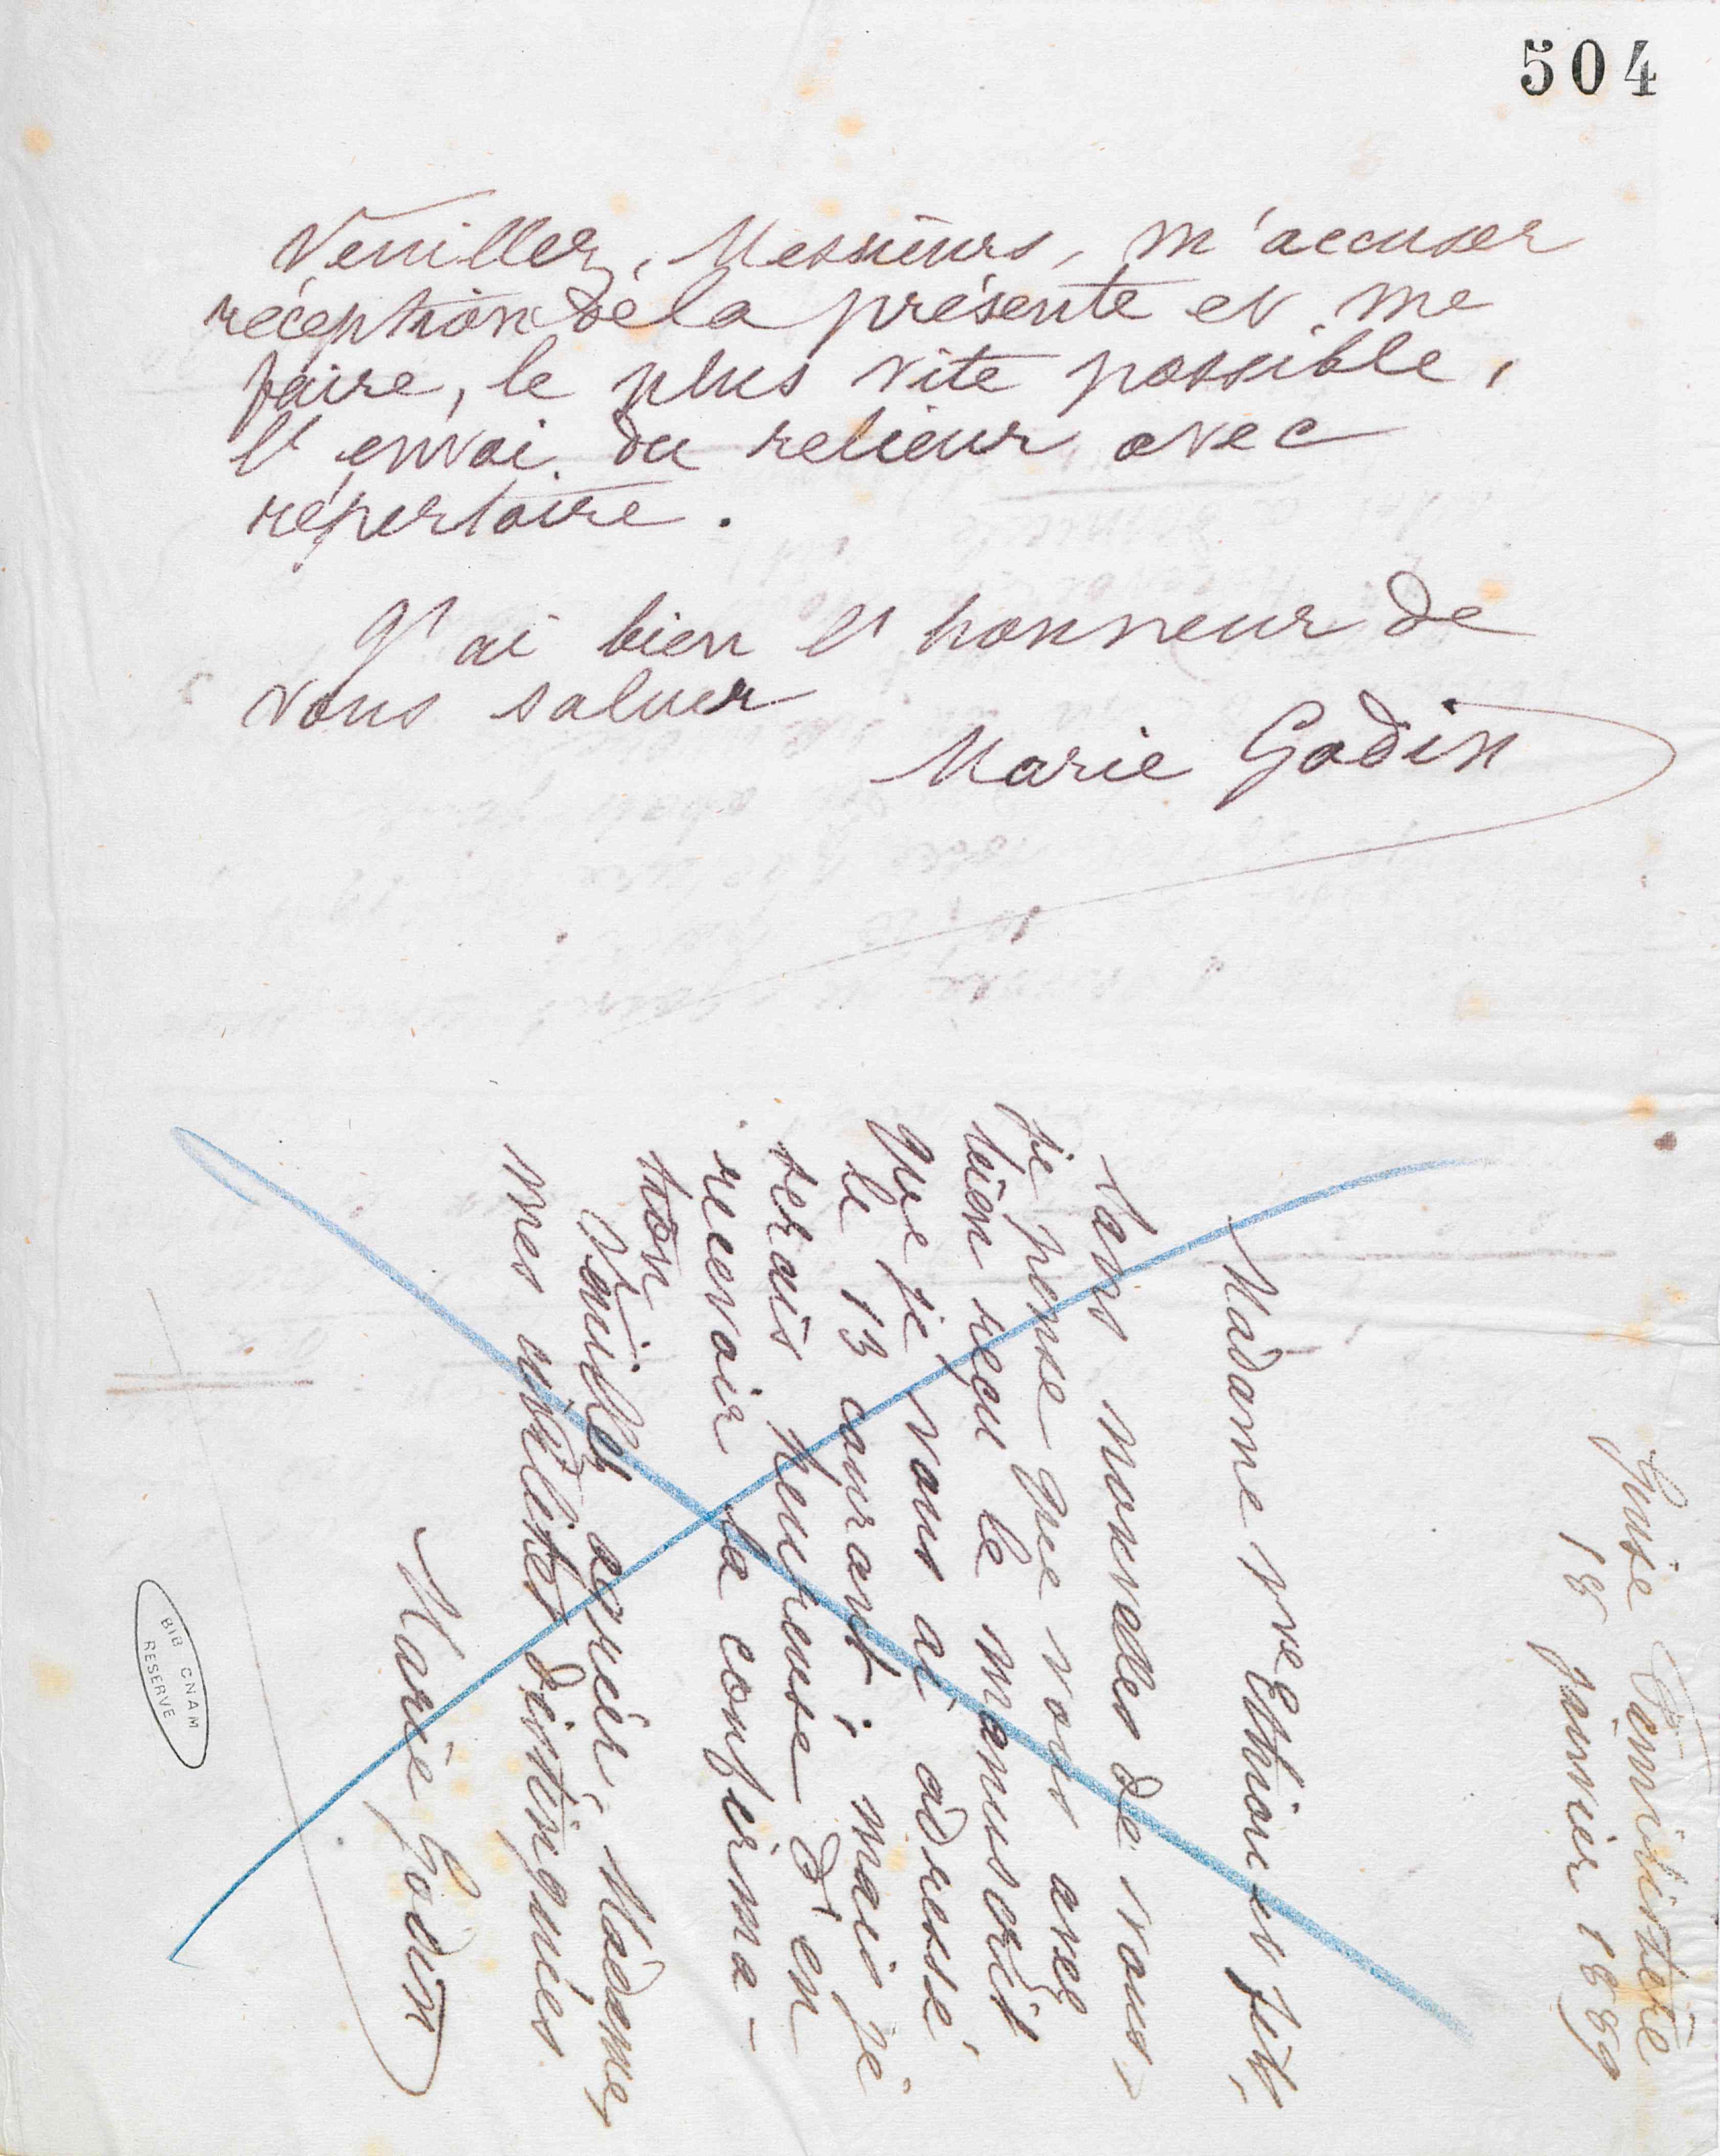 504
Veuillez, Messieurs, m'accuser
réception de la présente et me
faire, le plus vite possible,
l'envoi du relieur avec
répertoire.
J'ai bien l'honneur de
vous saluer
Marie Godin
Guise Familistère
18 janvier 1889
Madame vve Ethiou et fils,
Sans nouvelles de vous,
je pense que vous avez
bien reçu le manuscrit
que je vous ai adressé,
le 13 courant ; mais je
serais heureuse d'en
recevoir la confirma-
tion
Veuillez agréer, Madame,
mes civilités distinguées
Marie Godin
BIB CNAM
RESERVE